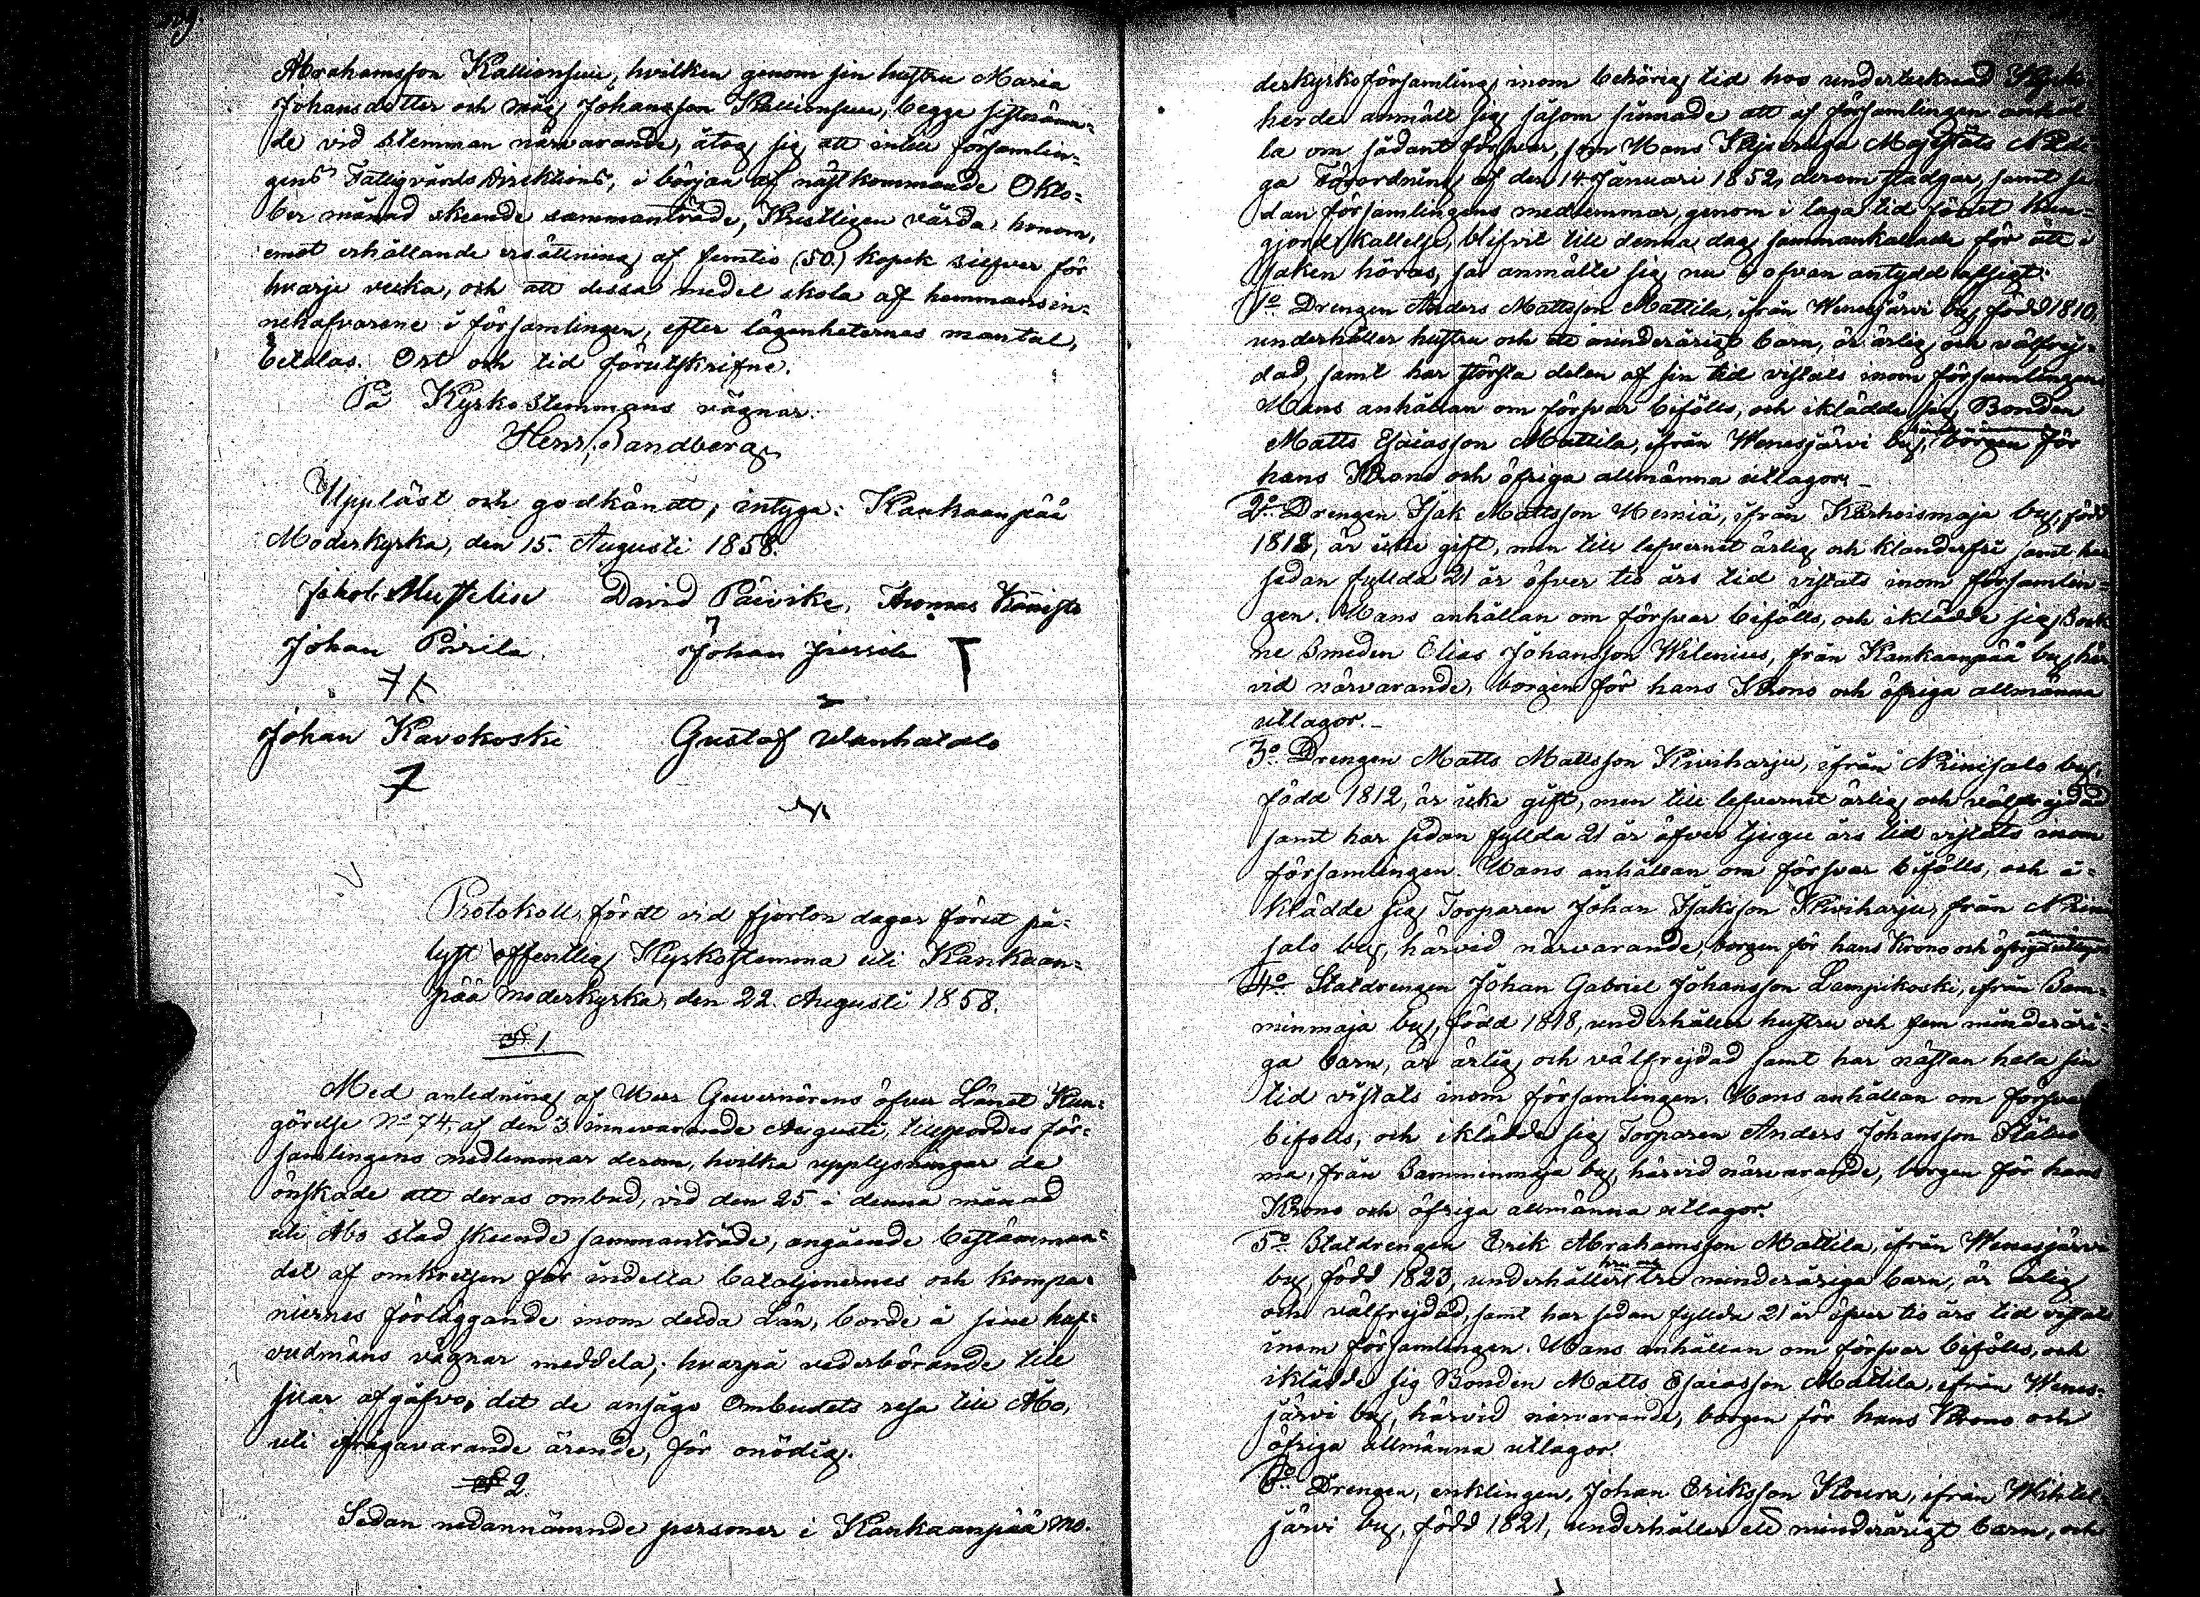 Abrahamsson Kallionsuu, hvilken genom sin hustru Maria
Johansdotter och måg Johansson Kallionsuu, begge sistnämn-
de vid stemman närvarande, åtog sig att intill församlin-
gens Fattigvårds Direktions, i början af nästkommande Okto-
ber månad skeende sammanträde, Kristligen vårda honom,
emot erhållande ersättning af femtio (50.) kopek silfver för
hvarje vecka, och att dessa medel skola af hemmansin-
nehafvarene i församlingen, efter lägenheternas mantal,
betalas. Ort och tid förutskrifne.
På Kyrkostemmans vägnar:
Henr. Sandberg
Uppläst och godkändt, intyga: Kankaanpää
Moderkyrka, den 15. Augusti 1858.
Jakob David Päivike, Thomas
Johan Pirilä Johan
Johan Kavokoski Gustaf Wanhatalo
Protokoll, fördt vid fjorton dagar förut på-
lyst offentlig Kyrkostemma uti Kankaan-
pää moderkyrka, den 22. Augusti 1858.
§ 1.
Med anledning af Herr Guvernörens öfver Länet Kun-
görelse No 74, af den 3 innevarande Augusti, tillspordes för-
samlingens medlemmar derom, hvilka upplysningar de
önskade att deras ombud, vid den 25 i denna månad
uti Åbo stad skeende sammanträde, angående bestämman-
det af omkretsen för indelta bataljonernes och kompa-
niernes förläggande inom detda Län, borde å sine huf-
vudmäns vägnar meddela; hvarpå vederbörande till
svar afgåfvo, det de ansågo Ombudets resa till Åbo,
uti ifrågavarande ärende, för onödig.
§ 2.
Sedan nedannämnde personer i Kankaanpää mo-
derkyrkoförsamling inom behörig tid hos undertecknad Kyrko-
herde anmält sig såsom sinnade att af församlingen anhål-
la om sådant försvar, som Hans Kejserliga Majestäts Nådi-
ga Förordning af den 14 Januari 1852, derom stadgar, samt se-
dan församlingens medlemmar, genom i laga tid förut kun-
gjord kallelse, blifvit till denna dag sammankallade för att i
saken höras, så anmälte sig nu i ofvan antydd afsigt:
1o Drengen Anders Mattsson Mattila, ifrån Wenesjärvi by, född 1810,
underhåller hustru och ett minderårigt barn, är ärlig och välfrej-
dad, samt har största delen af sin tid vistats inom församlingen.
Hans anhållan om försvar bifölls, och iklädde sig Bonden
Matts Esaiasson Mattila, ifrån Wenesjärvi by, borgen för
hans Krono och öfriga allmänna utlagor. –
2o Drengen Isak Mattsson Heiniä, ifrån Karhoismaja by, född
1818, är icke gift, men till lefvernet ärlig och klanderfri samt har
sedan fyllda 21 år öfver tio års tid vistats inom församlin-
gen. Hans anhållan om försvar bifölls, och iklädde sig Sock-
ne Smeden Elias Johansson Wilenius, från Kankaanpää by, här-
vid närvarande, borgen för hans Krono och öfriga allmänna
utlagor. –
3o Drengen Matts Mattsson Kiviharju, ifrån Niinisalo by,
född 1812, är icke gift, men till lefvernet ärlig och välfrejdad
samt har sedan fyllda 21 år öfver tjugu års tid vistats inom
församlingen. Hans anhållan om försvar bifölls, och i-
klädde sig Torparen Johan Isaksson Kiviharju, från Niini-
salo by, härvid närvarande, borgen för hans Krono och öfriga utlagor
4o Statdrengen Johan Gabriel Johansson Lampikoski, ifrån Sam-
minmaja by, född 1818, underhåller hustru och fem minderåri-
ga barn, är ärlig och välfrejdad samt har nästan hela sin
tid vistats inom församlingen. Hans anhållan om försvar
bifölls, och iklädde sig Torparen Anders Johansson
ma, från Samminmaja by, härvid närvarande, borgen för hans
Krono och öfriga allmänna utlagor.
5o Statdrengen Erik Abrahamsson Mattila, ifrån Wenesjärvi
by, född 1823, underhåller tre minderåriga barn, är ärlig
och välfrejdad, samt har sedan fyllda 21 år öfver tio års tid vistats
inom församlingen. Hans anhållan om försvar bifölls, och
iklädde sig Bonden Matts Esaiasson Mattila, ifrån Wenes-
järvi by, härvid närvarande, borgen för hans Krono och
öfriga allmänna utlagor.
6o Drengen, enklingen, Johan Eriksson Koura, ifrån Wihtel-
järvi by, född 1821, underhåller ett minderårigt barn, och